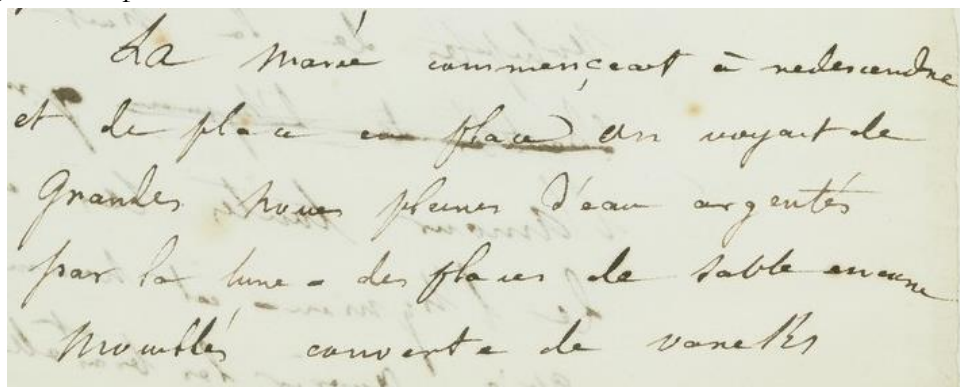 La marée commençeait à redescendre
et de place en place on voyait de
Grandes noues pleines d'eau argentés
par la lune - des places de sable encore
Mouillés couverte de varechs